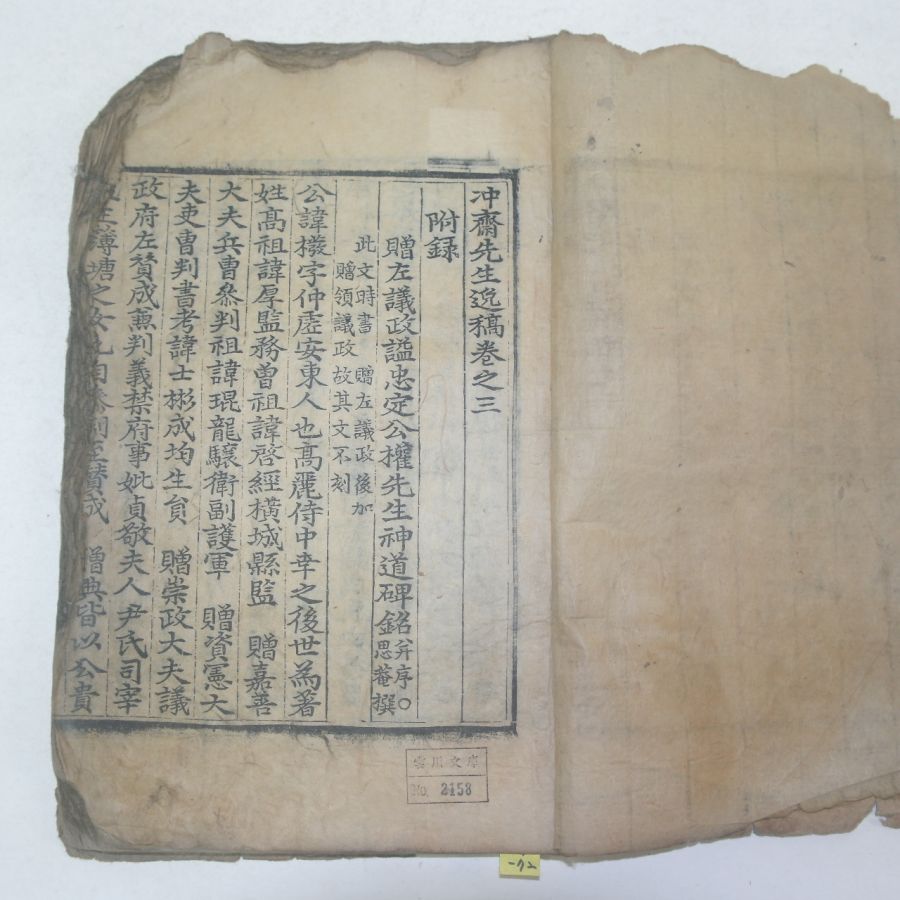 冲齋先生逸稿卷之三
附錄
贈左議政謚忠定公權先生神道碑銘并序○思菴撰
此文時書 贈左議政後加
贈領議政故其文不刻
公諱橃字仲虛安東人也高麗侍中幸之後世為著
姓高祖諱厚監務曾祖諱啓經橫城縣監 贈嘉善
大夫兵曹叅判祖諱琨龍驤衛副護軍 贈資憲大
夫吏曹判書考諱士彬成均生員 贈崇政大夫議
政府左贊成兼判義禁府事妣貞敬夫人尹氏司宰
主簿塘之女也自叅判至贊成 贈典皆以公貴
雲川文庫
No. 2158
-72